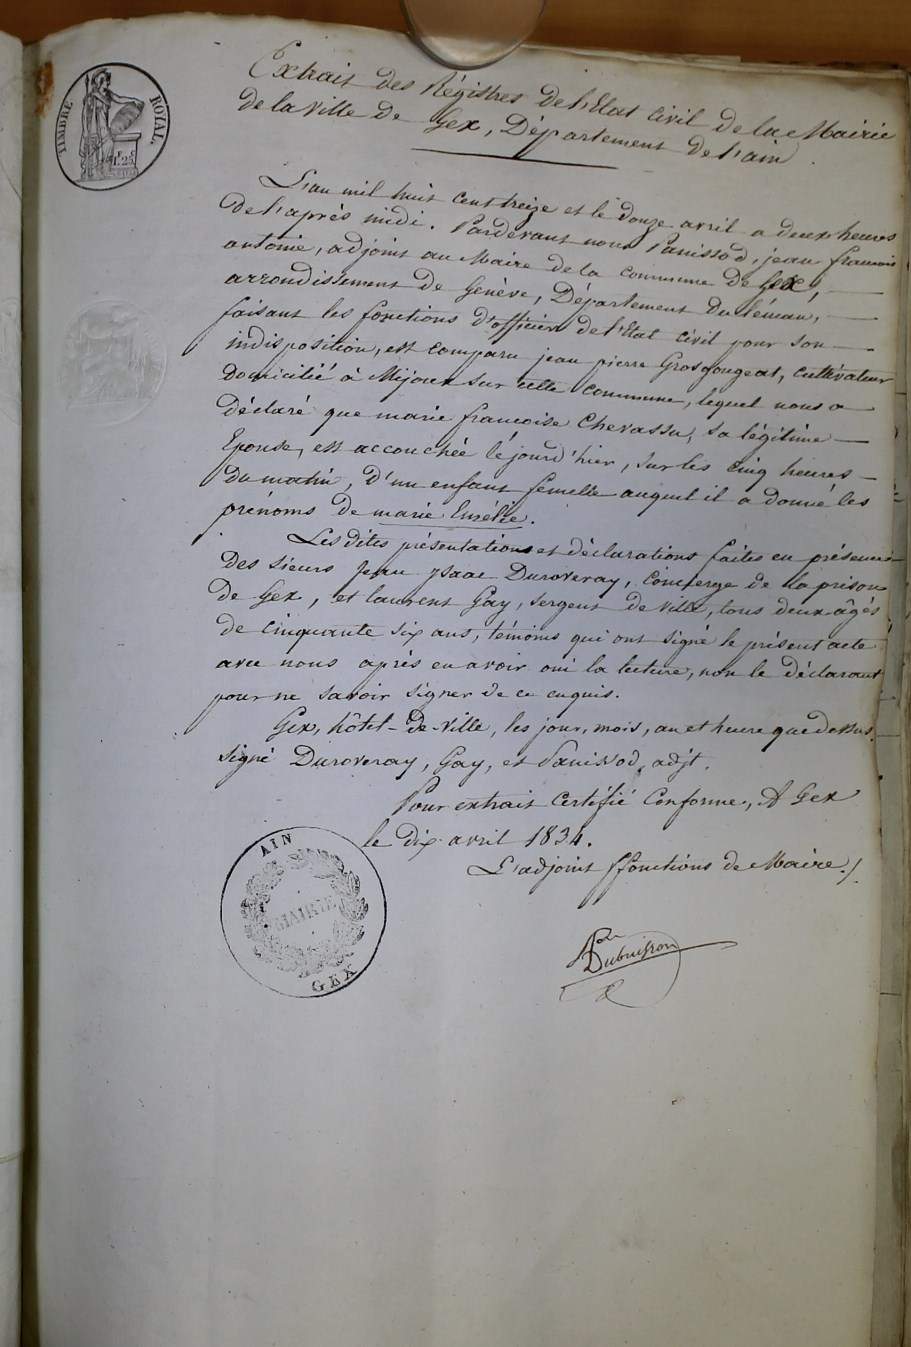 TIMBRE ROYAL
1F 25
Extrait des Régistres de l'Etat civil de la Mairie
de la ville de Gex, Département de l'ain.
L'an mil huit cent treize et le douze avril a deux heures
de l'après midi. Pardevant nous Panissod, jean francois
antoine, adjoint au Maire de la commune de Gex,
arrondissement de Genève, Département du Léman,
faisant les fonctions d'officier de l'Etat civil pour son
indisposition, est comparu jean pierre Grosgougeat, cultivateur
domicilié à Mijoux sur cette commune, lequel nous a
déclaré que marie francoise Chevassu, sa légitime
Epouse, est accouchée le jourd'hier, sur les cinq heures
du matin, d'un enfant femelle auquel il a donné les
prénoms de marie
Les dites présentations et déclarations faites en présence
des sieurs Jean ysaac Duroveray, concierge de la prison
de Gex, et laurent Gay, sergent de ville, tous deux âgés
de cinquante six ans, témoins qui ont signé le présent acte
avec nous après en avoir oui la lecture, non le déclarant
pour ne savoir signer de ce enquis.
Gex, hôtel-de-ville, les jour, mois, an et heure que dessus.
signé Duroveray, Gay, et Panissod, adjt.
Pour extrait certifié conforme, A Gex
le dix avril 1834.
L'adjoint ffonctions de Maire
AIN
MAIRIE
GEX
Dubuisson